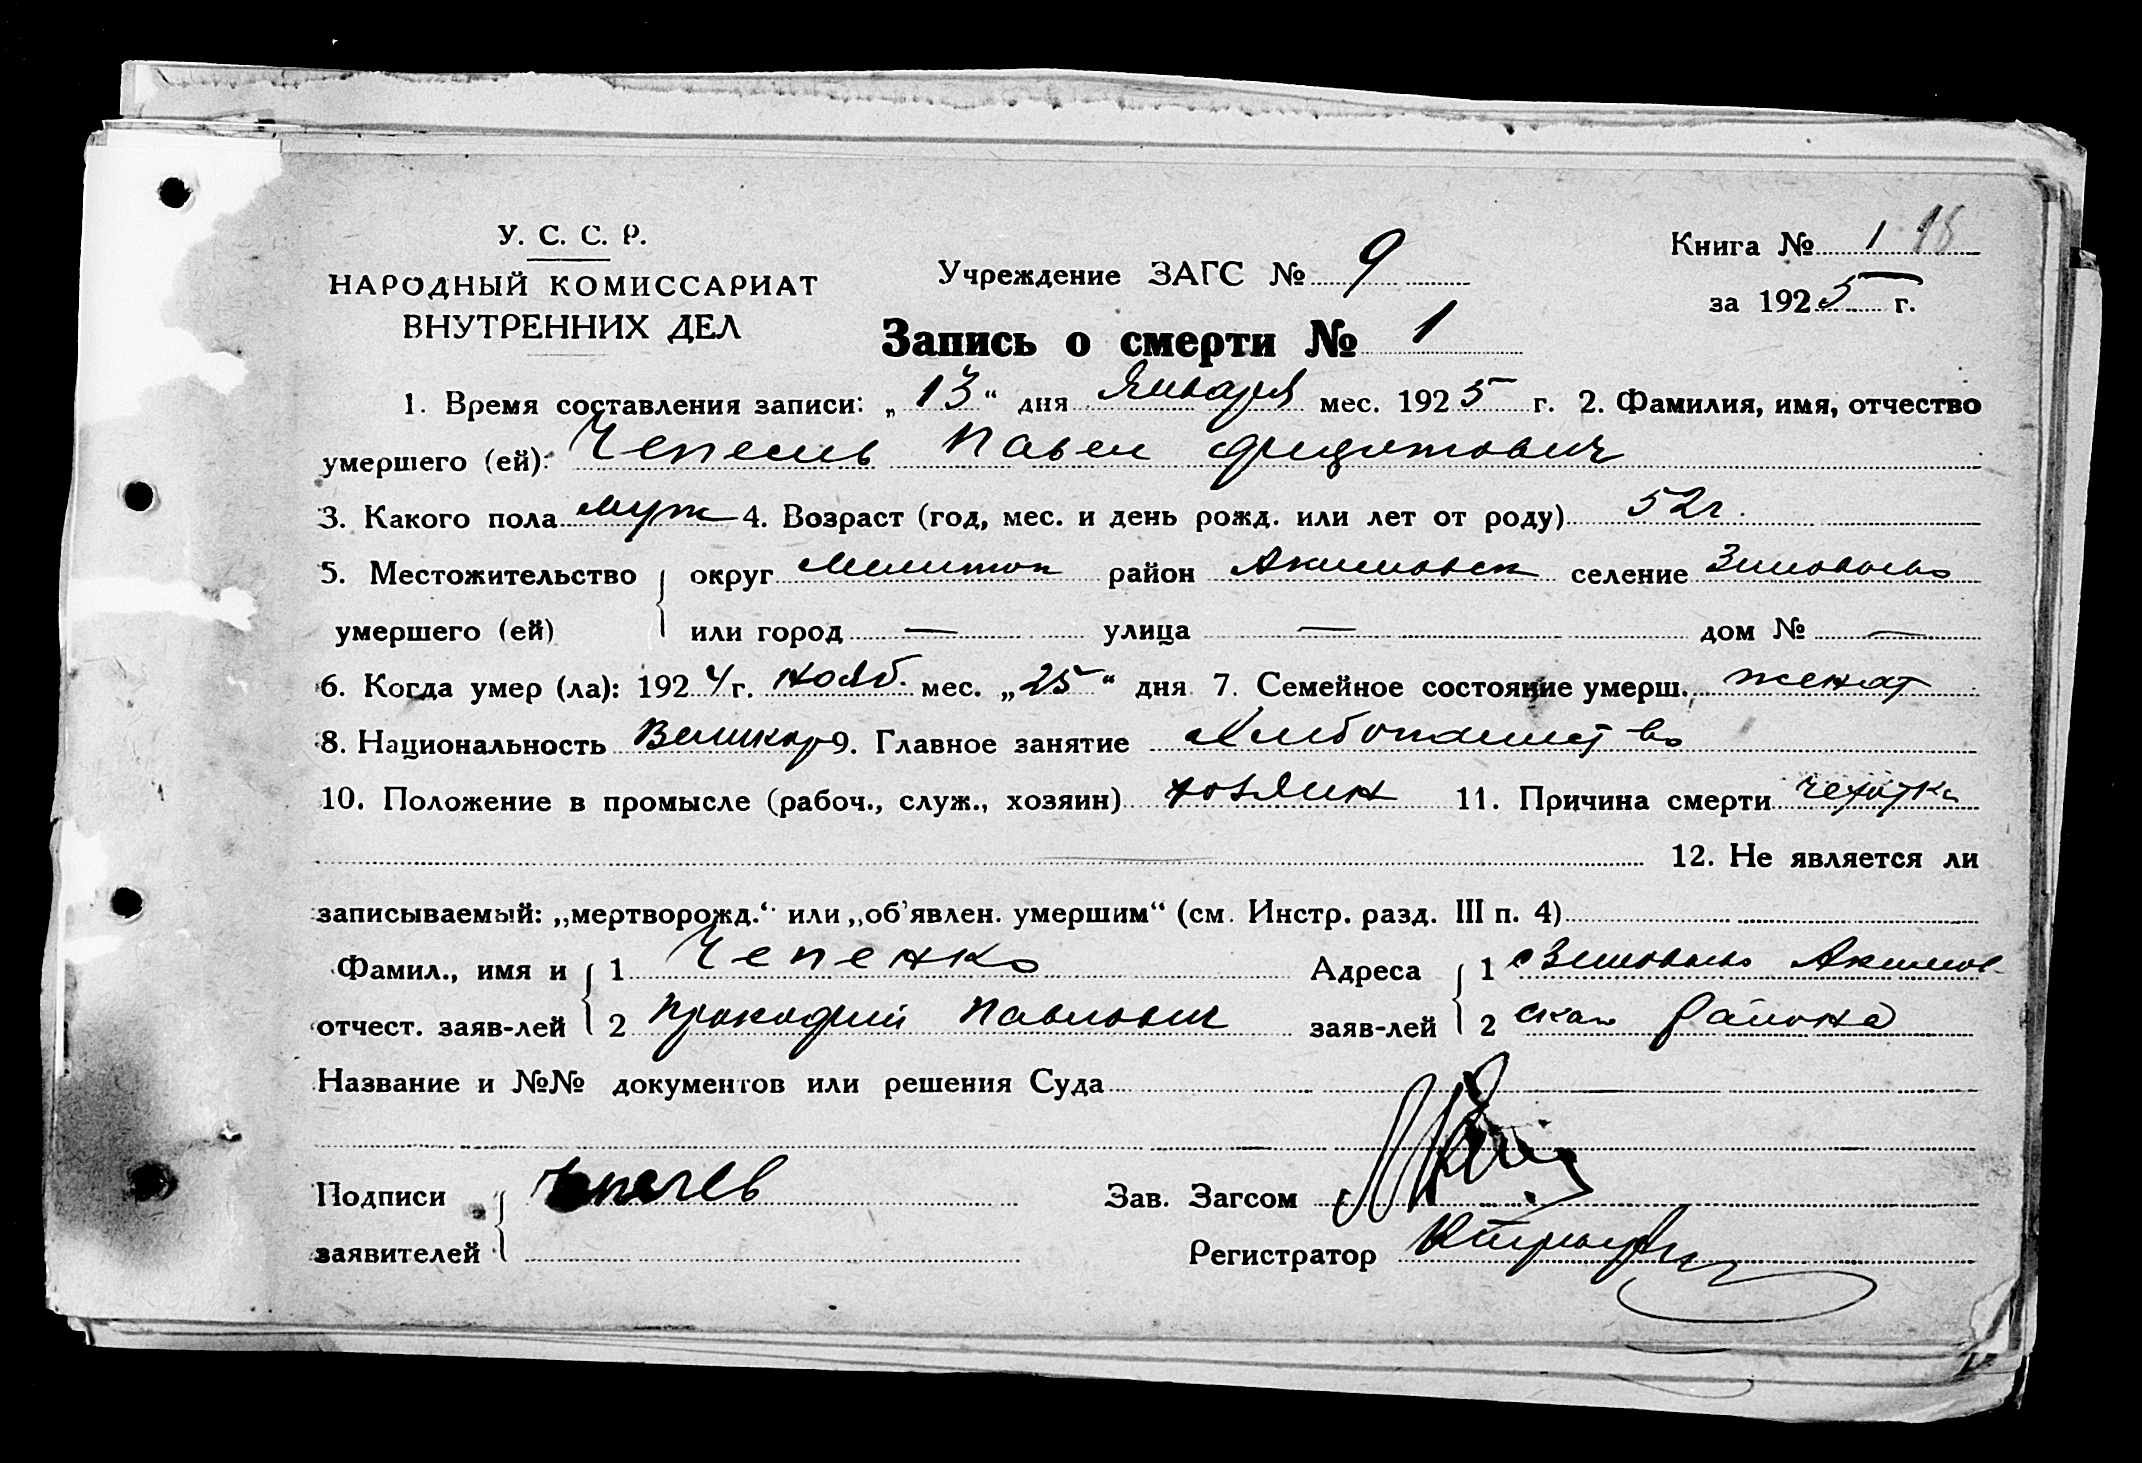 У. С. С. Р.
НАРОДНЫЙ КОМИССАРИАТ
ВНУТРЕННИХ ДЕЛ
Учреждение ЗАГС № 9
Книга № 1 18
за 1925 г.
Запись о смерти № 1
1. Время составления записи: „13“ дня Января мес. 1925 г. 2. Фамилия, имя, отчество
умершего (ей): Павел
3. Какого пола муж 4. Возраст (год, мес. и день рожд. или лет от роду) 52 г.
5. Местожительство округ Мелитоп район Акимовск селение
умершего (ей) или город — улица — дом № —
6. Когда умер (ла): 1924 г. Нояб. мес. „25“ дня 7. Семейное состояние умерш. женат
8. Национальность Великор 9. Главное занятие
10. Положение в промысле (рабоч., служ., хозяин) хозяин 11. Причина смерти чахотка
12. Не является ли
записываемый: „мертворожд.“ или „об'явлен. умершим“ (см. Инстр. разд. III п. 4)
Фамил., имя и 1 Чепенко Адреса 1 Акимов-
отчест. заяв-лей 2 Прокофий Павлович заяв-лей 2 ская Района
Название и №№ документов или решения Суда
Подписи
заявителей
Зав. Загсом
Регистратор